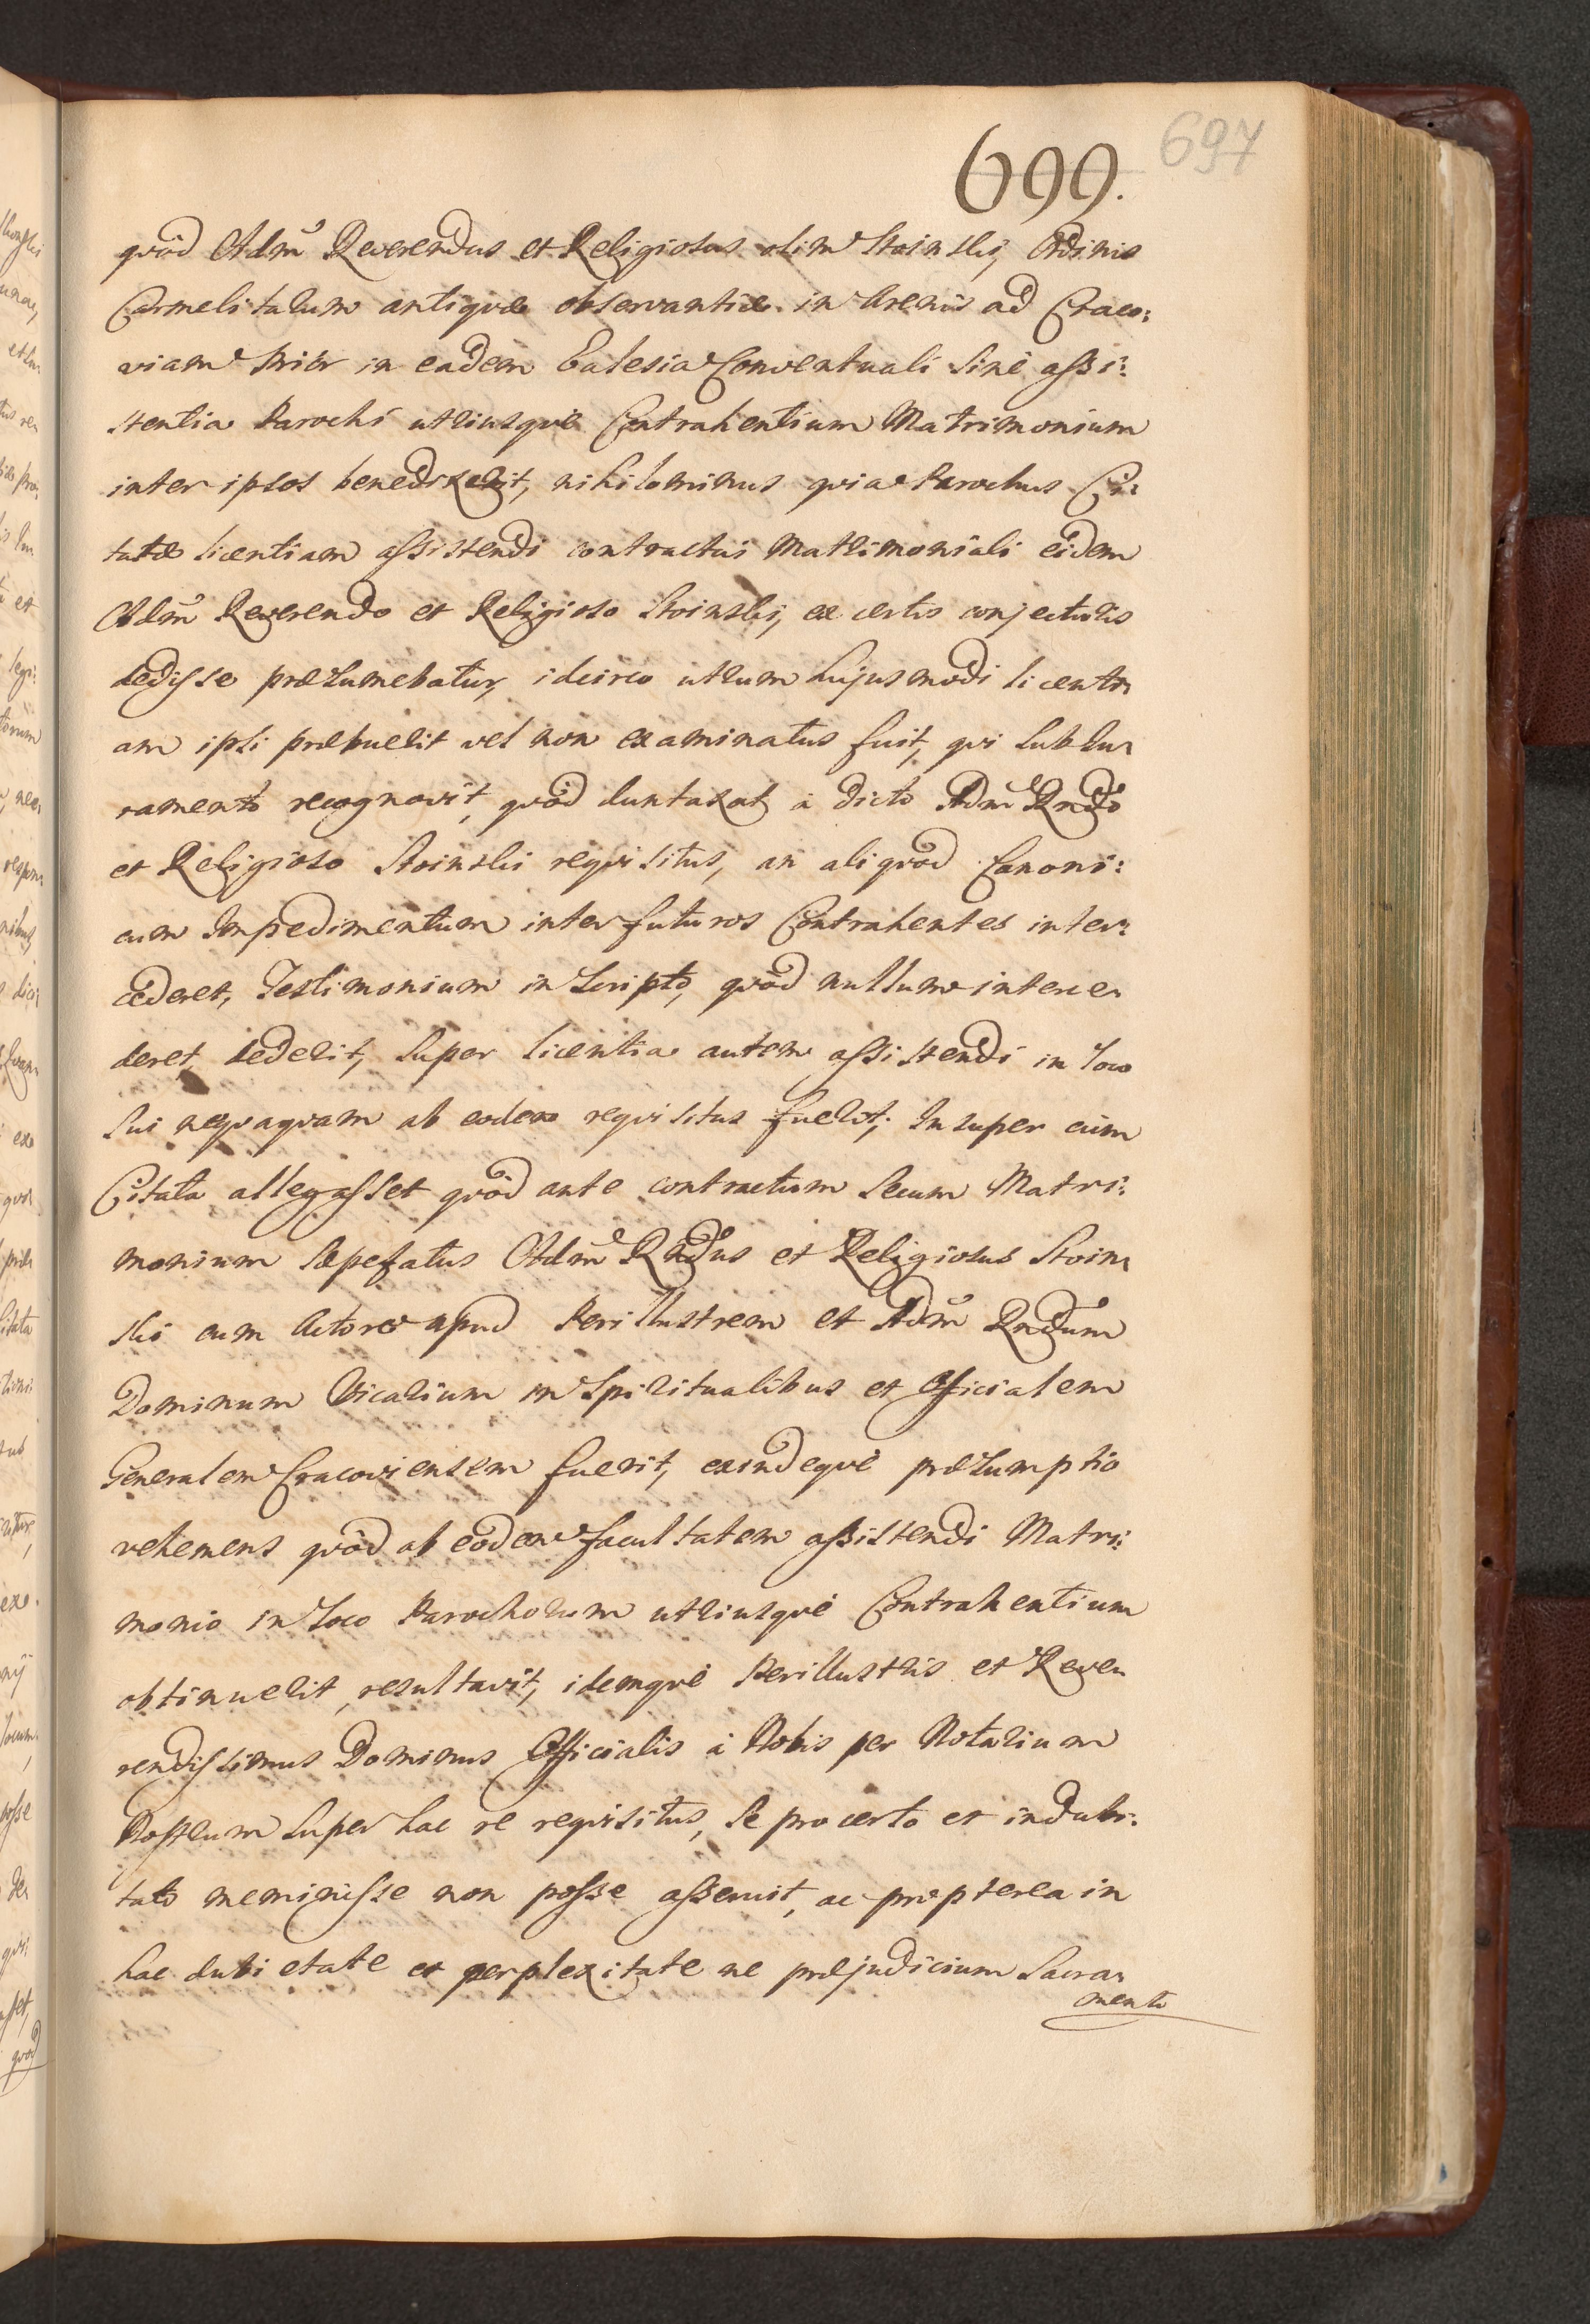 699. 697
quòd Adm Reverendus et Religiosus olim Stoinski, Ordinis
Carmelitarum antiquæ observantiæ in Arenis ad Craco:
viam Prior in eadem Ecclesia Conventuali sine assi:
stentia Parochi utriusquè Contrahentium Matrimonium
inter ipsos benedixerit, nihilominus quia Parochus Ci:
tatæ licentiam assistendi contractui Matrimoniali eidem
Adm Reverendo et Religioso Stoinski, ex certis conjecturis
dedisse præsumebatur, idcirco utrum hujusmodi licenti
am ipsi præbuerit vel non examinatus fuit, qui sub Ju
ramento recognovit, quòd duntaxat à dicto Adm Rndo
et Religioso Stoinski requisitus, an aliquod Canoni:
cum Impedimentum inter futuros Contrahentes inter:
cederet, Testimonium in Scripto, quòd nullum interce
deret, dederit, super licentia autem assistendi in loco
sui nequaquam ab eodem requisitus fuerit; Insuper cùm
Citata allegasset quòd ante contractum secum Matri:
monium sæpefatus Adm Rndus et Religiosus Stoin
ski cum Actore apud Perillustrem et Adm Rndum
Dominum Vicarium in Spiritualibus et Officialem
Generalem Cracoviensem fuerit, exindequè præsumptio
vehemens quòd ab eodem facultatem assistendi Matri:
monio in loco Parochorum utriusquè Contrahentium
obtinuerit, resultavit, idemquè Perillustris et Reve
rendissimus Dominus Officialis à Nobis per Notarium
Nostrum super hac re requisitus, se pro certo et indubi:
tato meminisse non posse asseruit, ac propterea in
hac dubietate et perplexitate ne præjudicium Sacra
mento